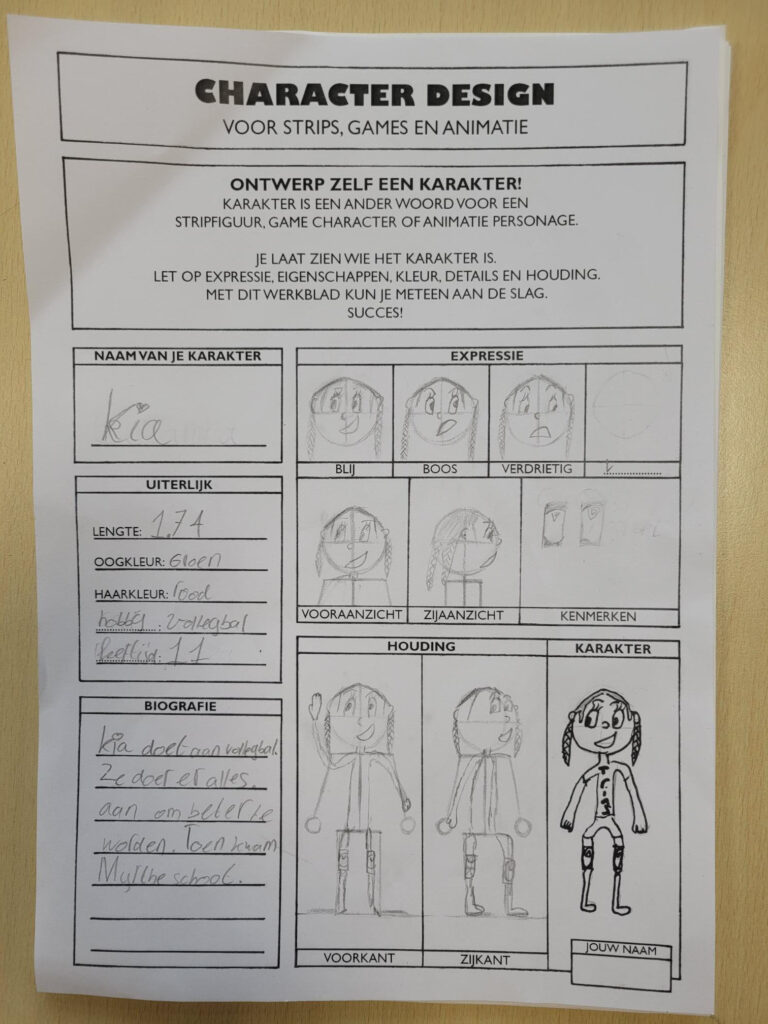 CHARACTER DESIGN
VOOR STRIPS, GAMES EN ANIMATIE
ONTWERP ZELF EEN KARAKTER!
KARAKTER IS EEN ANDER WOORD VOOR EEN
STRIPFIGUUR, GAME CHARACTER OF ANIMATIE PERSONAGE.
JE LAAT ZIEN WIE HET KARAKTER IS.
LET OP EXPRESSIE, EIGENSCHAPPEN, KLEUR, DETAILS EN HOUDING.
MET DIT WERKBLAD KUN JE METEEN AAN DE SLAG.
SUCCES!
NAAM VAN JE KARAKTER
kia
UITERLIJK
LENGTE: 1.74
OOGKLEUR: Groen
HAARKLEUR: rood
hobby: volleybal
leeftijd: 11
BIOGRAFIE
kia doet aan volleybal.
Ze doet er alles
aan om beter te
worden. Toen kwam
school.
EXPRESSIE
BLIJ
BOOS
VERDRIETIG
VOORAANZICHT
ZIJAANZICHT
KENMERKEN
HOUDING
VOORKANT
ZIJKANT
KARAKTER
JOUW NAAM